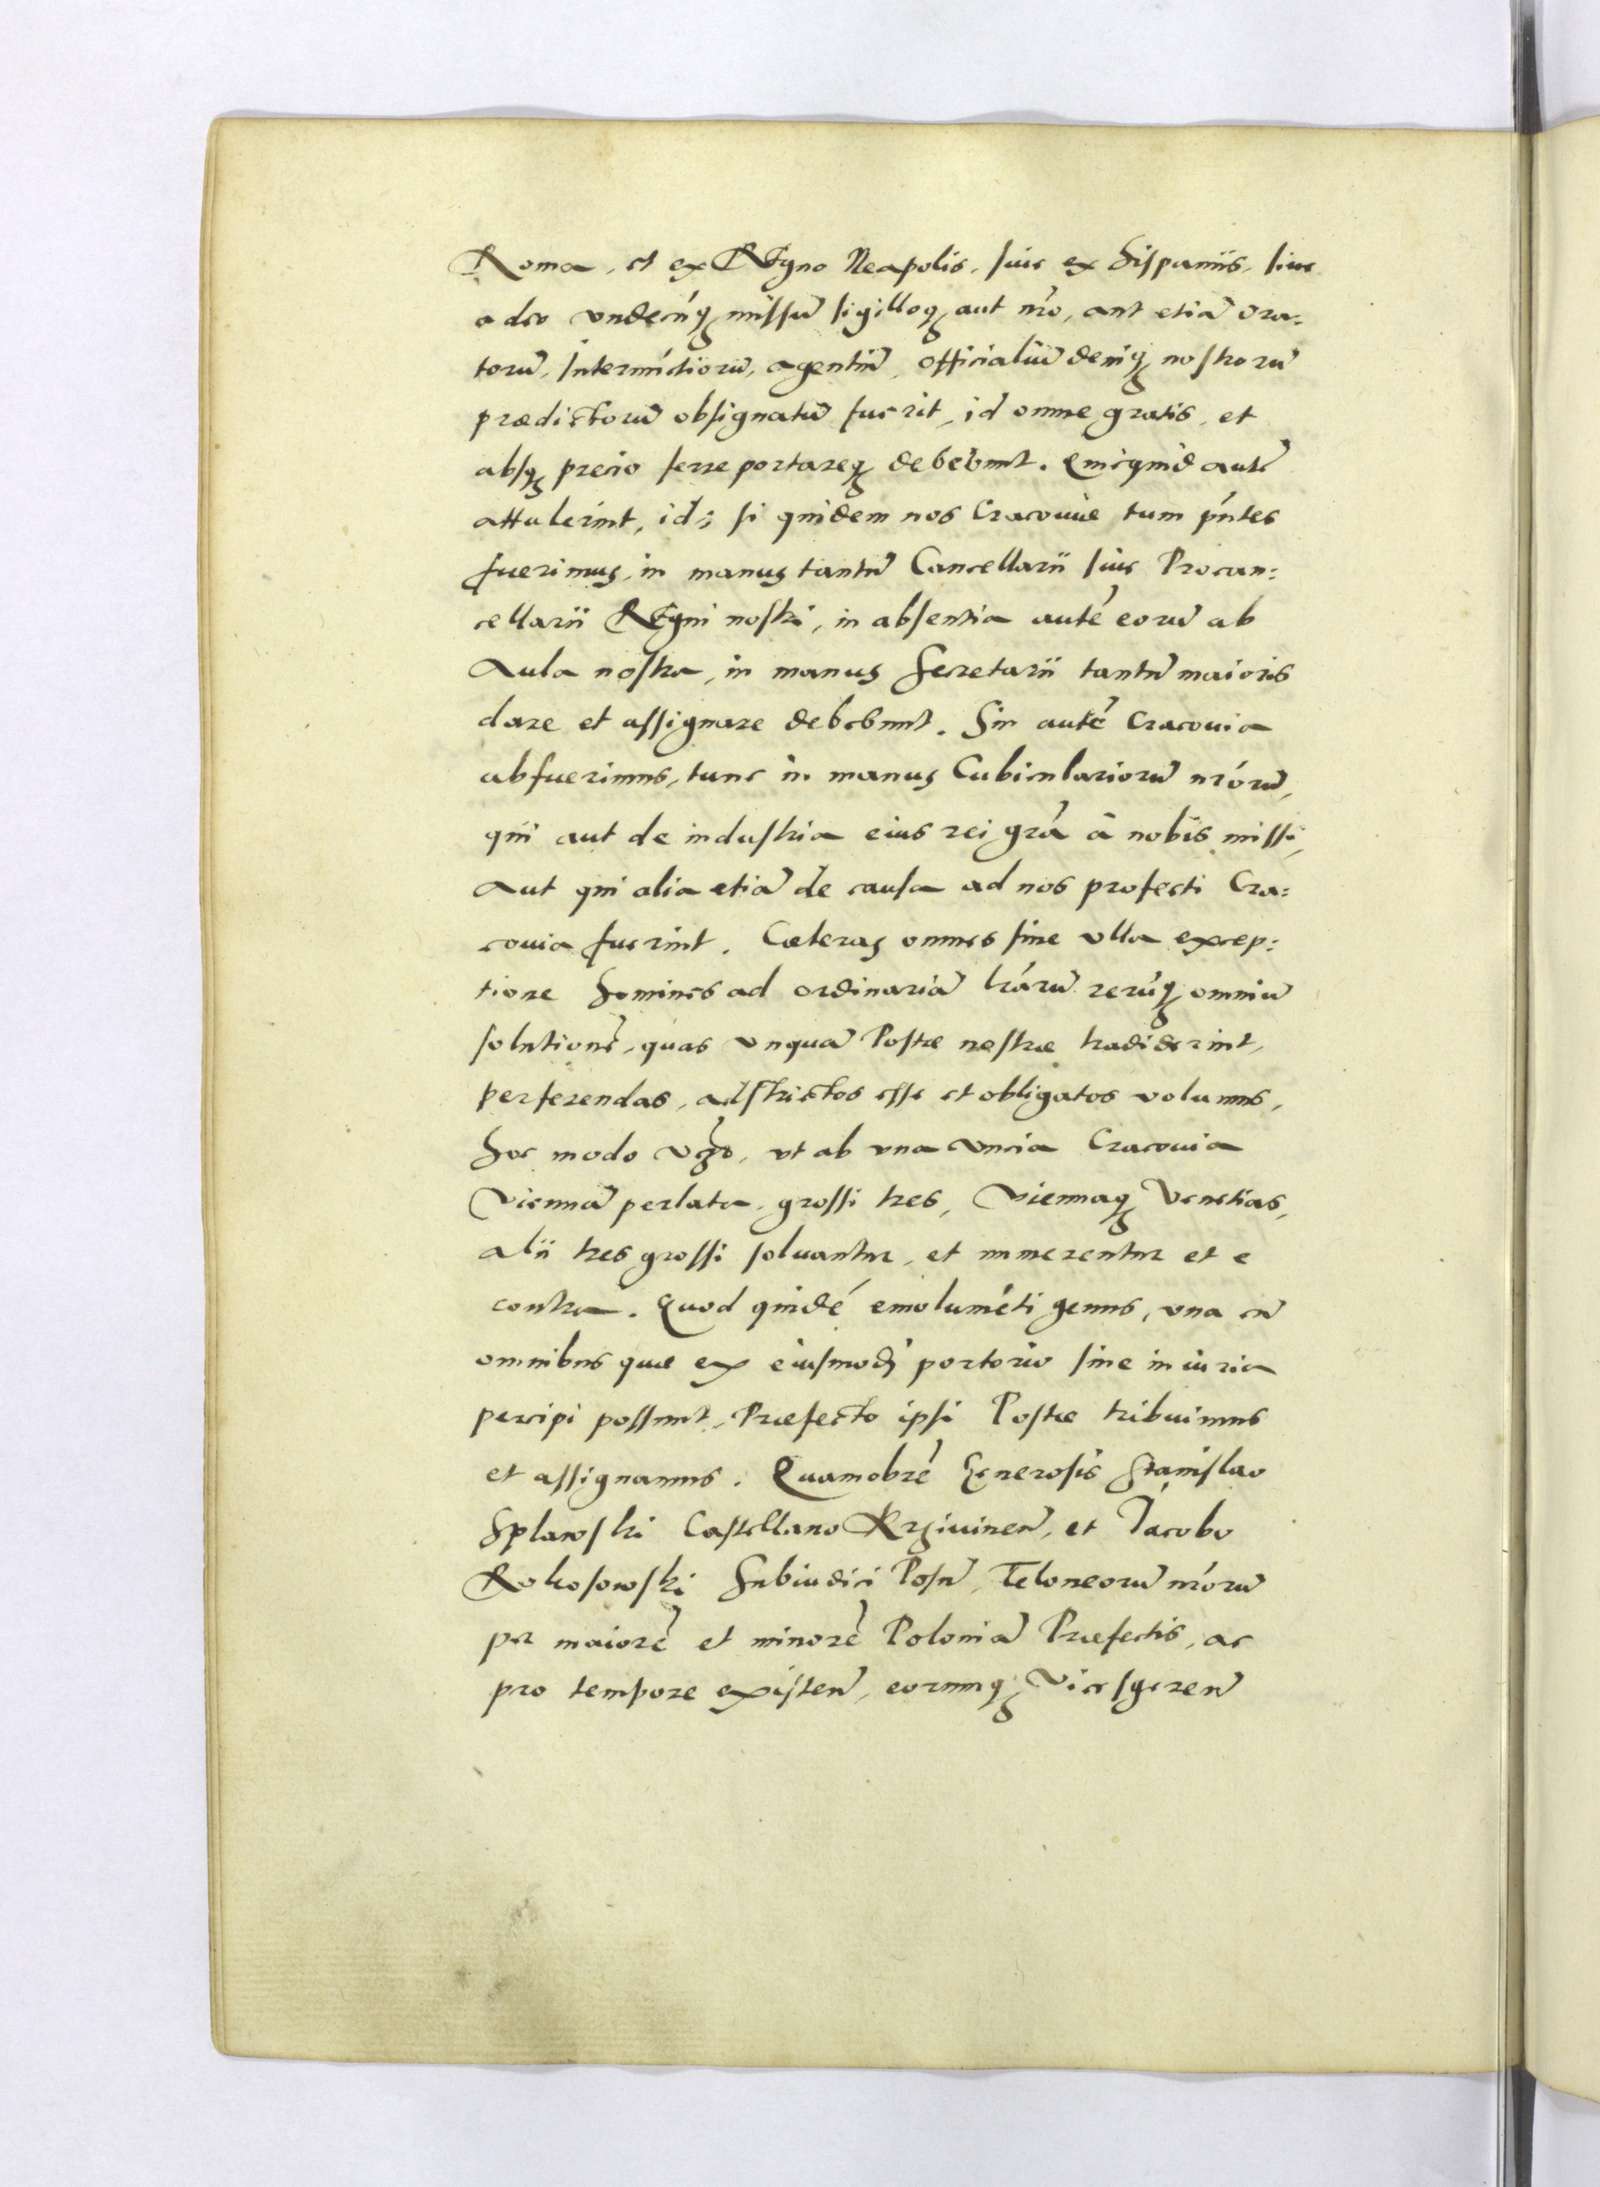 Roma, et ex Regno Neapolis, siue ex Hispaniis, siue
adeo vndecúq missũ sigilloq aut nr̃o, aut etiã Ora:
torũ, Internúctiorũ, agentiũ, officialiũ deniq nostrorũ
prædictorũ obsignatũ fuerit, id omne gratis, et
absq precio ferre portareq debebunt. Quicquid autẽ
attulerint, id, si quidem nos Cracouiæ tum pńtes
fuerimus, in manus tantũ Cancellarii siue Procan:
cellarii Regni nostri, in absentia autẽ eorũ ab
Aula nostra, in manus Secretarii tantũ maioris
dare et assignare debebunt. Sin autẽ Cracouia
abfuerimus, tunc in manus Cubiculariorũ nr̃orũ,
qui aut de industria eius rei grã â nobis missi,
aut qui alia etiã de causa ad nos profecti Cra:
couia fuerint. Cæteras omnes sine vlla excep:
tione homines ad ordinariã lr̃arũ rerũq omniũ
solutionẽ, quas vnquã Postæ nostræ tradiderint,
perferendas, adstrictos esse et obligatos volumus,
hoc modo verò, vt ab vna vncia Cracouia
Viennã perlata, grossi tres, Viennaq Venetias,
alii tres grossi soluantur, et numerentur et e
contra. Quod quidẽ emolumẽti genus, vna cũ
omnibus quæ ex eiusmodi portorio sine iniuria
percipi possunt, Præfecto ipsi Postæ tribuimus
et assignamus. Quamobrẽ Generosis Stanislao
Splawski Castellano Krziuinen̄, et Jacobo
Rokosowski Subiudici Posn̄, Teloneorũ nr̃orũ
per maiorẽ et minorẽ Poloniã Præfectis, ac
pro tempore existen̄, eorumq Vicesgeren̄